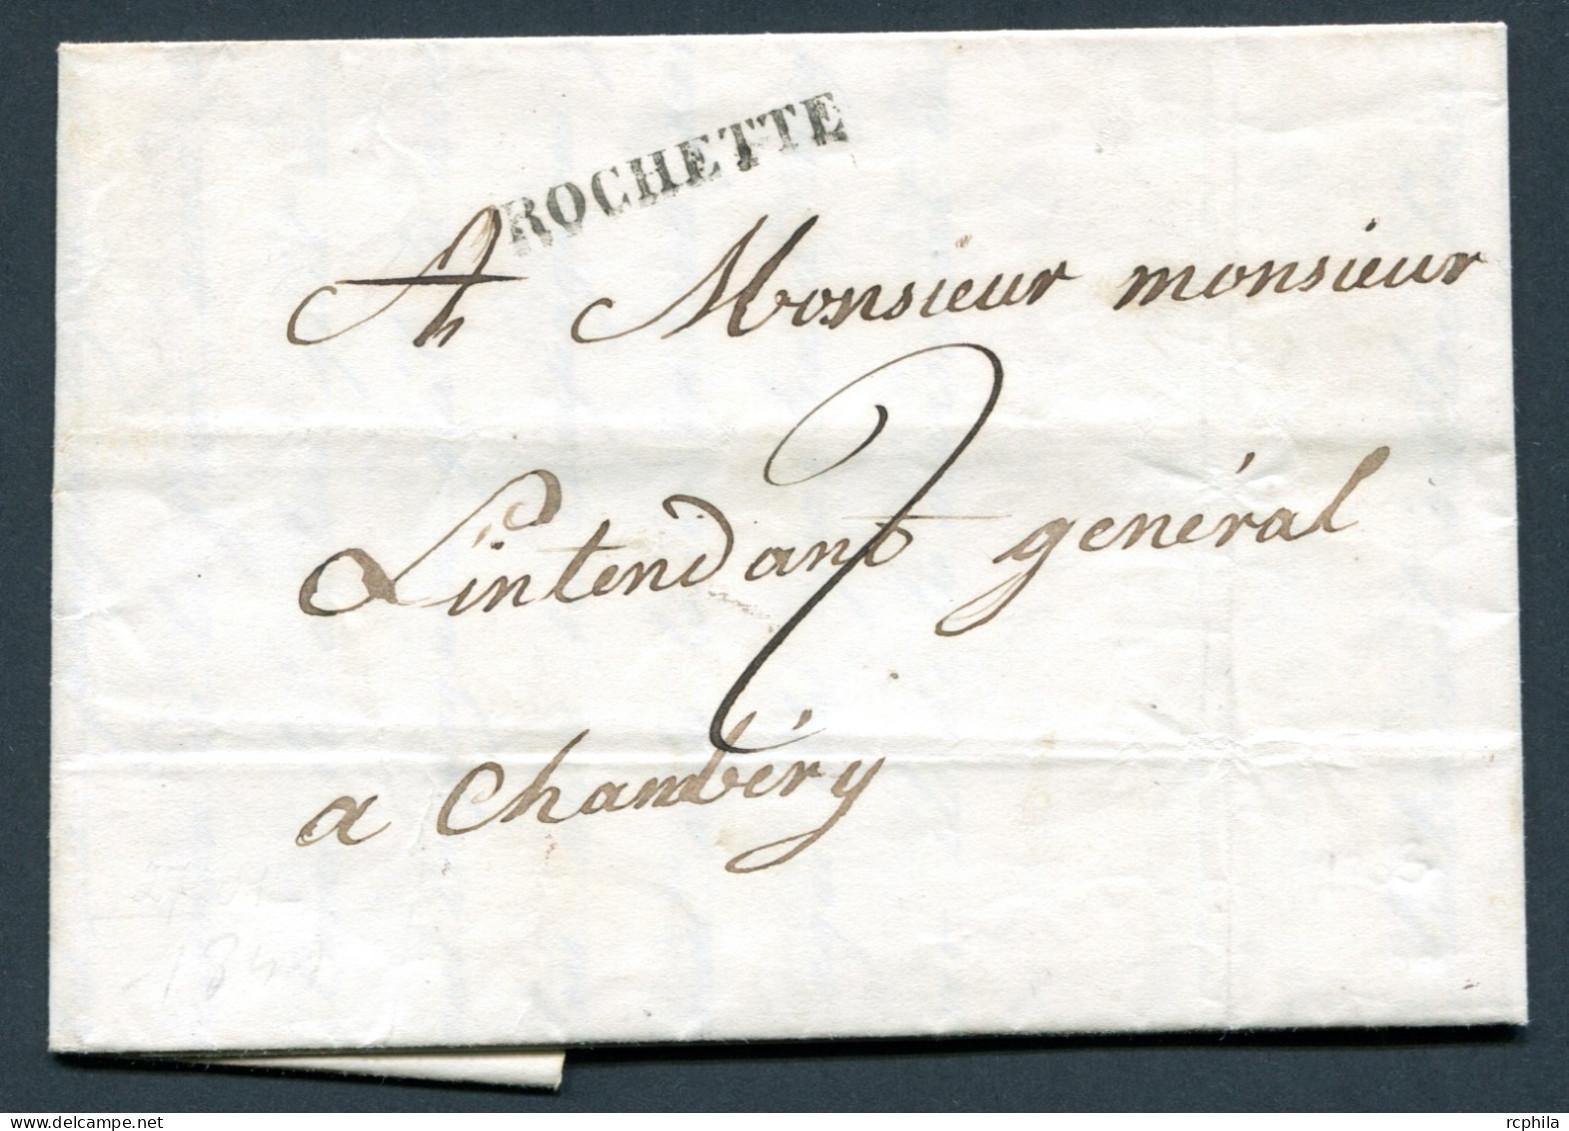 ROCHETTE
A Monsieur monsieur
2
L'intendant général
a Chambéry
rcphila